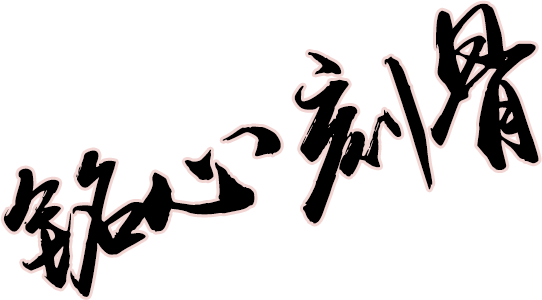 铭心刻骨